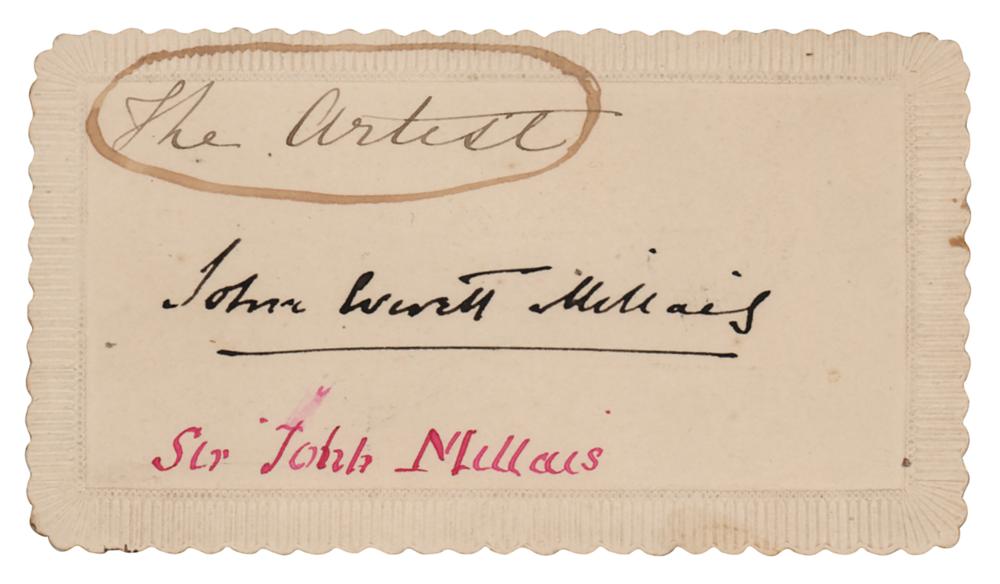 The Artist
John Everett Millais
Sir John Millais